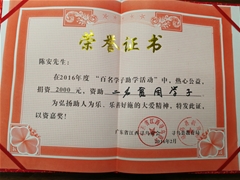 荣誉证书
陈安先生：
在2016年度“百名学子助学活动”中，热心公益，
捐资2000元，资助二名贫困学子
为弘扬助人为乐、乐善好施的大爱精神，特发此证，
以资嘉奖！
2016年3月